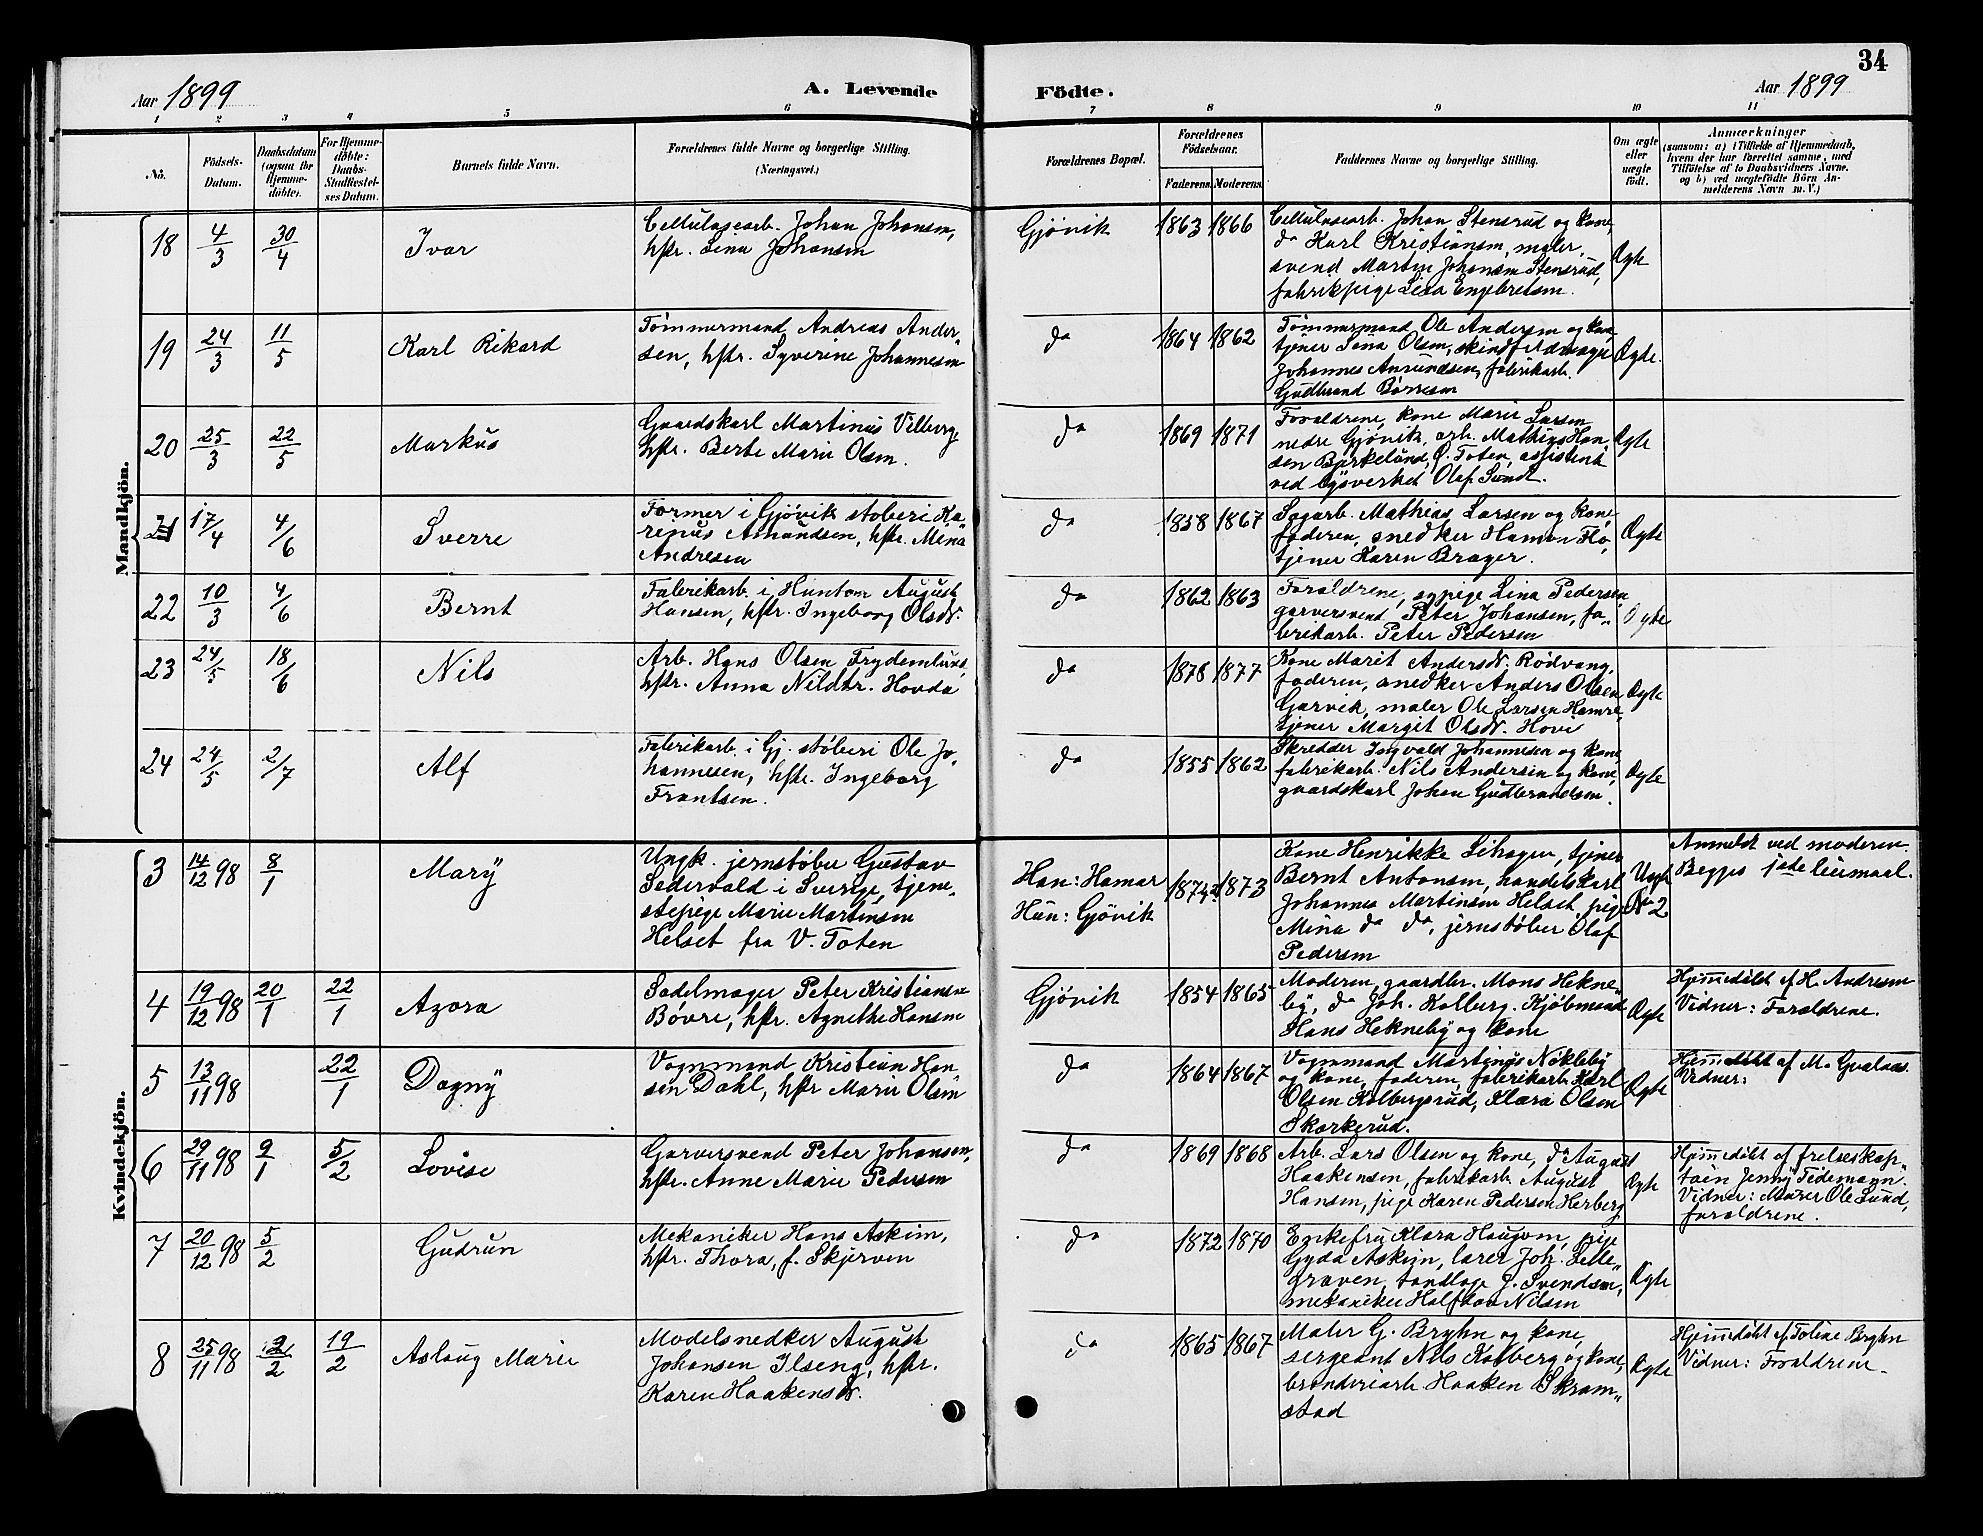 34
Aar 1899
A. Levende Födte.
Aar 1899
1 2 3 4 5 6 7 8 9 10 11
No.
Födsels-Datum.
Daabsdatum (ogsaa for Hjemmedöbte).
For Hjemmedöbte: Daabs-Stadfæstelses Datum.
Barnets fulde Navn.
Forældrenes fulde Navne og borgerlige Stilling. (Næringsvei.)
Forældrenes Bopæl.
Forældrenes Födselsaar.
Faderens. Moderens.
Faddernes Navne og borgerlige Stilling.
Om ægte eller uægte født.
Anmærkninger
(saasom: a) i Tilfælde af Hjemmedaab, hvem der har forrettet samme, med Tilföielse af to Daabsvidners Navne. og b) ved uægtefödte Börn Anmelderens Navn m. V.)
Mandkjön.
18 4/3 30/4 Ivar
Cellulosearb. Johan Johansen,
hstr. Lina Johansen
Gjövik 1863 1866
Cellulosearb. Johan Stensrud og kone,
do Karl Kristiansen, maler-
svend Martin Johansen Stensrud,
fabrikpige Lina Engebretsen.
Ægte
19 24/3 11/5 Karl Rikard
Tömmermand Andreas Ander-
sen, hstr. Syverine Johannesen
do 1864 1862
Tömmermand Ole Andersen og kone,
tjener Lina Olsen, skindfeldmager
Johannes Amundsen, fabrikarb.
Gudbrand Börresen
Ægte.
20 25/3 22/5 Markus
Gaardskarl Martinus Vilberg,
hstr. Berte Marie Olsen.
do 1869 1871
Forældrene, kone Marie Larsen
nedre Gjövik, arb. Mathias Han-
sen Bjerkelund, Ö. Toten, assistent
ved lysverket Olaf Sund.
Ægte
21 17/4 4/6 Sverre
Former i Gjövik stöberi Ka-
rinus Amundsen, hstr. Mina
Andresen
do 1858 1867
Sagarb. Mathias Larsen og kone,
faderen, snedker Hamon Flö,
tjener Karen Brager.
Ægte
22 10/3 4/6 Bernt
Fabrikarb. i Hunton August
Hansen, hstr. Ingeborg Olsdr.
do 1862 1863
Forældrene, sypige Lina Pedersen
garversvend Peter Johansen, fa-
brikarb. Peter Pedersen
Ægte
23 24/5 18/6 Nils
Arb. Hans Olsen Frydenlund,
hstr. Anna Nilsdtr. Hovda
do 1878 1877
Kone Marit Andersdr. Rödvang,
faderen, snedker Anders Olsen
Garvik, maler Ole Larsen Hamre,
tjener Margit Olsdr. Hovi
Ægte
24 24/5 2/7 Alf
Fabrikarb. i Gj. stöberi Ole Jo-
hannesen, hstr. Ingeborg
Frantsen.
do 1855 1862
Skredder Ingvald Johannesen og kone,
fabrikarb. Nils Andersen og kone,
gaardskarl Johan Gudbrandsen.
Ægte
Kvindekjön.
3 14/12 98 8/1 Mary
Ungk. jernstöber Gustav
Södervald i Sverige, tjene-
stepige Marie Martinsen
Helset fra V. Toten
Han: Hamar
Hun: Gjövik
1874? 1873
Kone Henrikke Lihagen, tjener
Bernt Antonsen, handelskarl
Johannes Martinsen Helset, pige
Mina do do, jernstöber Olaf
Pedersen
Uægte No 2
Anmeldt ved moderen.
Begges 1ste leiermaal.
4 19/12 98 20/1 22/1 Azora
Sadelmager Peter Kristiansen
Bövre, hstr. Agnethe Hansen
Gjövik 1854 1865
Moderen, gaardbr. Mons Hekne-
by, do Joh. Kolberg. Kjöbmand
Hans Hekneby og kone
Ægte
Hjemmedöbt af H. Andresen
Vidner: Forældrene.
5 13/11 98 22/1 Dagny
Vognmand Kristian Han-
sen Dahl, hstr Marie Olsen
do 1864 1867
Vognmand Martinus Nökleby
og kone, faderen, fabrikarb. Karl
Olsen Kolbergsrud, Klara Olsen
Skarkerud.
Ægte
Hjemmedöbt af M. Gvalaas.
Vidner:
6 29/11 98 9/1 5/2 Lovise
Garversvend Peter Johansen,
hstr. Anne Marie Pedersen
do 1869 1868
Arb. Lars Olsen og kone, do August
Haakensen, fabrikarb. August
Hansen, pige Karen Pedersen Herberg
Ægte
Hjemmedöbt af frelseskap-
tæin Jenny Tidemann.
Vidner: Murer Ole Lund,
forældrene.
7 20/12 98 5/2 Gudrun
Mekaniker Hans Askim,
hstr. Thora, f. Skjerven
do 1872 1870
Enkefru Klara Haugom, pige
Gyda Askim, lærer Joh. Lille-
græven, tandlæge J. Svendsen,
mekaniker Halfdan Nilsen
Ægte
8 25/11 98 2/2 19/2 Aslaug Marie
Modelsnedker August
Johansen Ilseng, hstr.
Karen Haakensdr.
do 1865 1867
Maler G. Bryhn og kone,
sergeant Nils Kolberg og kone,
brænderiarb Haaken Skram-
stad
Ægte
Hjemmedöbt af Toline Bryhn
Vidner: Forældrene.